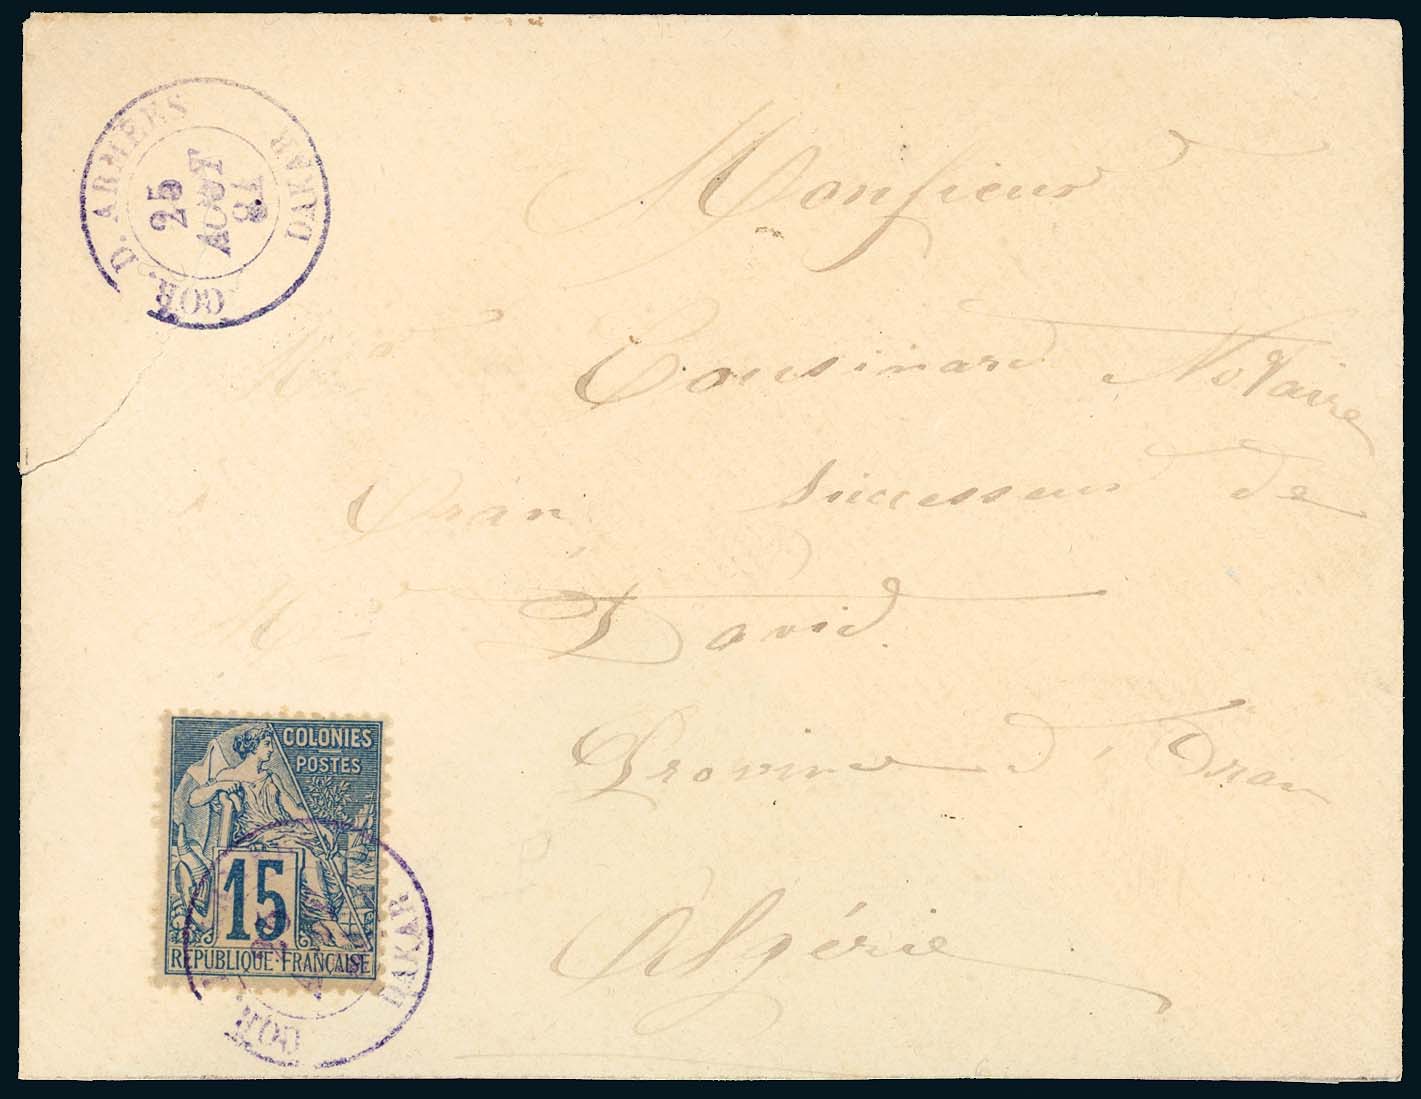 COR. D. ARMÉES
DAKAR
25
AOUT
Monsieur
Cousinard Notaire
Oran, successeur de
David
Province d'Oran
Algérie
COLONIES
POSTES
15
RÉPUBLIQUE FRANÇAISE
COR.
DAKAR